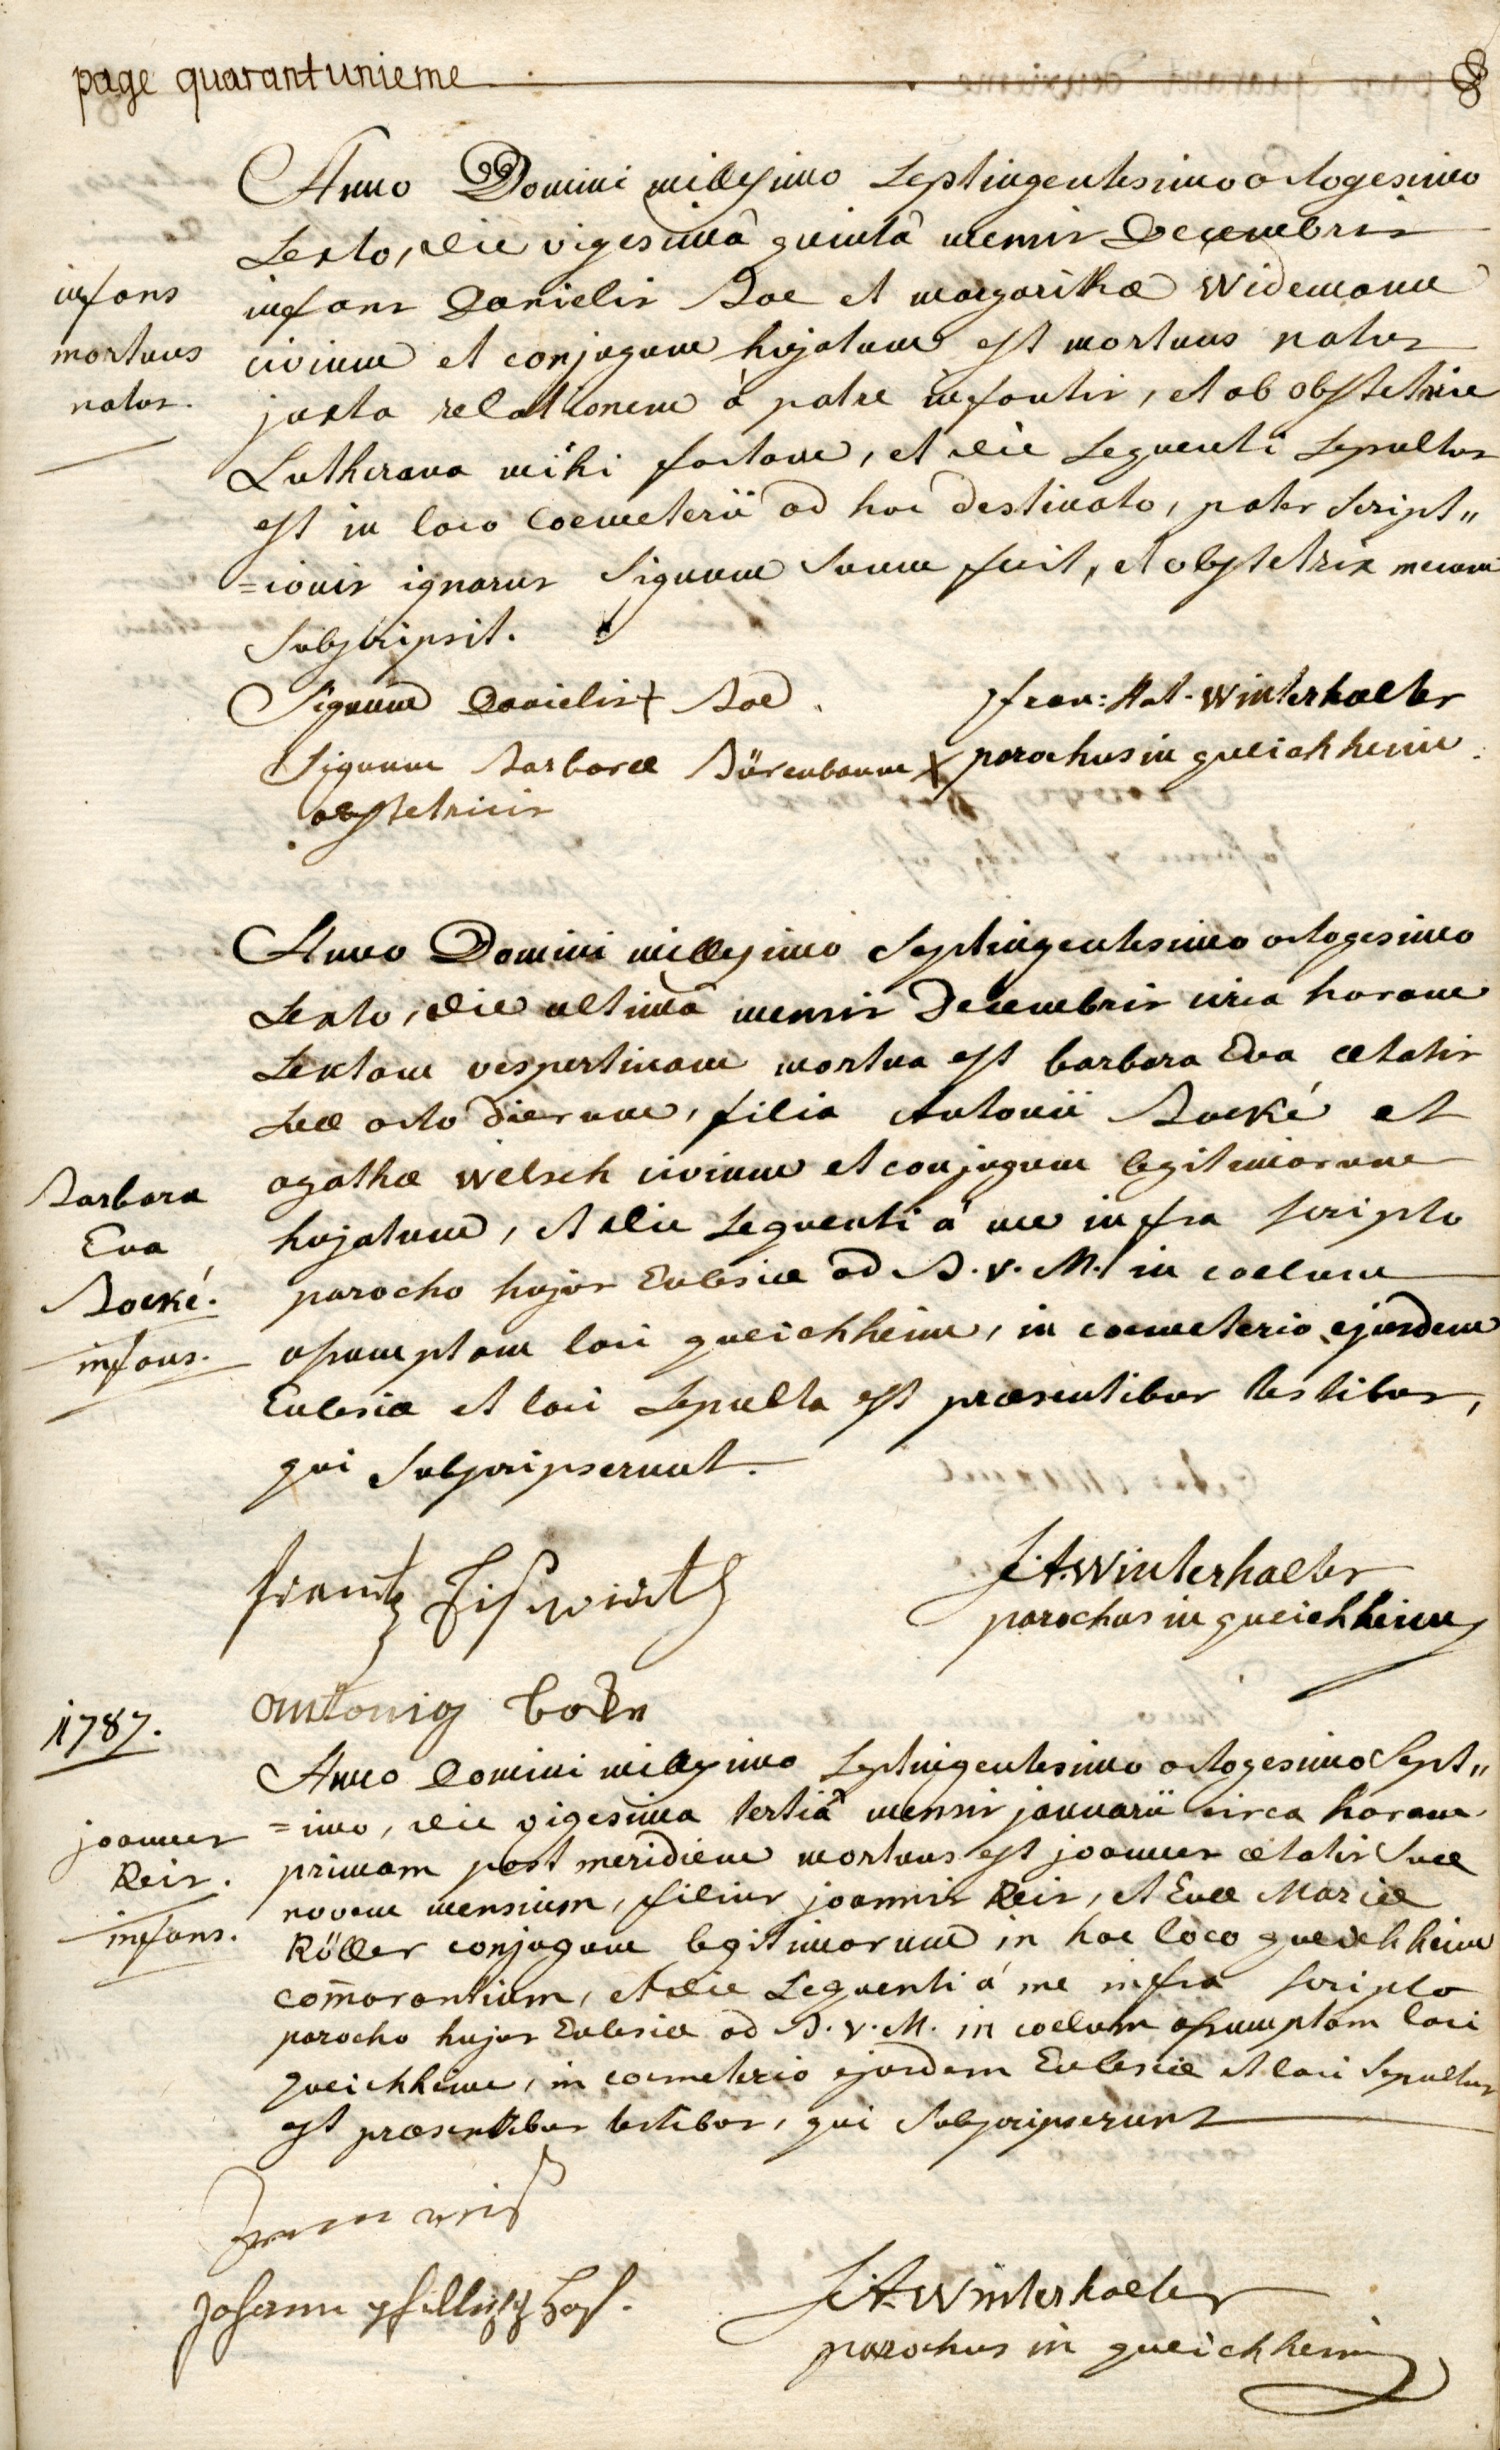 page quarantunieme
Anno Domini millesimo Septingentesimo octogesimo
Sexto, die vigesimâ quintâ mensis Decembris
infans
mortuus
natus.
infans Danielis Boe et margarithæ Widemann
civium et conjugum hujatum est mortuus natus
juxta relationem à patre infantis, et ab obstetrice
Lutherana mihi factam, et die Sequenti Sepultus
est in loco coemeterii ad hoc destinato, pater Script„
=ionis ignarus Signum Suum fecit, et obstetrix mecum
Subscripsit.
Signum Danielis + Boe.
fran: Ant. Winterhalter
parochus in queichheim.
Signum Barbaræ Bürenbaum X
obstetricis
Anno Domini millesimo Septingentesimo octogesimo
Sexto, die ultimâ mensis Decembris circa horam
Sextam vespertinam mortua est barbara Eva ætatis
Suæ octo dierum, filia Antonii Bocké et
agathæ Welsch civium et conjugum legitimorum
Barbara
Eva
Bocké.
infans.
hujatum, et die Sequenti á me infra Scripto
parocho hujus Eclesiæ ad B. V. M. in coelum
assumptam loci queichheim, in coemeterio ejusdem
Eclesiæ et loci Sepulta est præsentibus testibus,
qui Subscripserunt.
frantz
F: A. Winterhalter
parochus in queichheim
antonig
1787.
Anno Domini millesimo Septingentesimo octogesimo Sept„
=imo, die vigesima tertiâ mensis januarii circa horam
joannes
Reis.
infans.
primam post meridiem mortuus est joannes ætatis Suæ
novem mensium, filius joannis Reis, et Evæ Mariæ
Röller conjugum legitimorum in hoc loco queichheim
com̄orantium, et die Sequenti á me infra Scripto
parocho hujus Eclesiæ ad B. V. M. in coelum assumptam loci
queichheim, in coemeterio ejusdem Eclesiæ et loci Sepultus
est præsentibus testibus, qui Subscripserunt
Johann
F: A. Winterhalter
parochus in queichheim